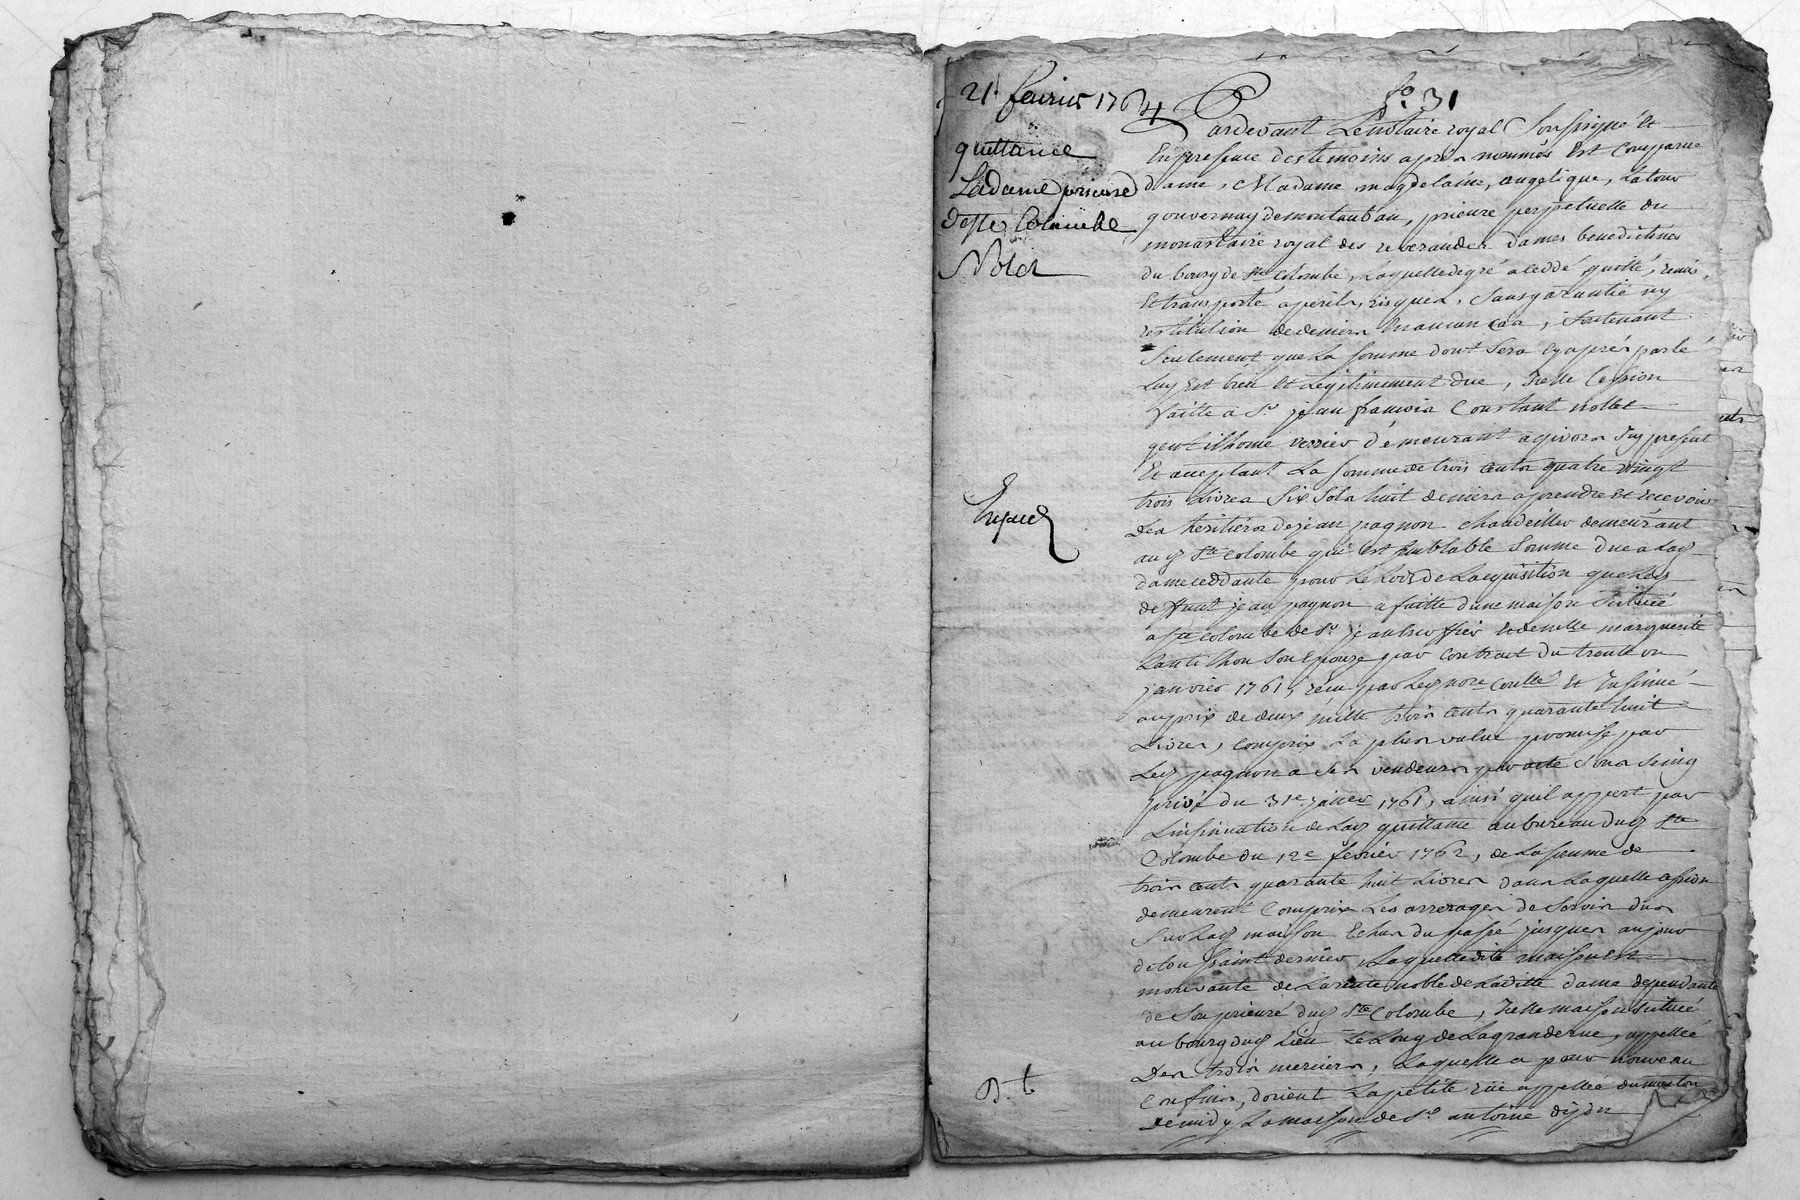 21e fevrier 1764
quittance
Ladame prieure
de ste Colombe
Nolet
fo. 31
Pardevant Le notaire royal Soussigné et
En presence des temoins apres nommés Est comparue
dame, Madame magdelaine, angelique, Latour
gouvernay de montauban, prieure perpetuelle du
monastaire royal des reverandes dames benedictines
du bourg de ste colombe, Laquelle de gré a ceddé quitté, remis,
Et transporté a perils, risques, Sans garantie ny
restitution de deniers en aucun cas, Soutenant
Seulement que La somme dont Sera cy apres parlé
Luy Est bien et Legitimement due, Icelle Cession
faitte a Sr. jean francois Constant nollet
gentilhome verrier demeurant a givors Icy present
Et acceptant La somme de trois cents quatre vingt
trois Livres Six Sols huit deniers a prendre et recevoir
Des heritiers de jean pagnon chandellier demeurant
aud ste colombe qui Est semblable Somme due a Lad
dame ceddante pour Le Lods de Lacquisition que Led
deffunt jean pagnon a faitte dune maison Situéé
a ste colombe de Sr. jean et demlle marguerite
Lantilhon Son Epouze par contract du trente un
janvier 1761, recu par Led nore Coulle Et Insinué
au prix de deux mille trois cents quarante huit
Livres, compris La plus value promise par
Led pagnon a Ses vendeurs par acte Sous Seing
privé du 31e janer 1761, ainsi quil appert par
Linsinuation de Lad quittance au bureau dud ste
Colombe du 12e fevrier 1762, de La somme de
trois cents quarante huit Livres dans Laquelle
demeurent Compris Les arrerages de Servis dus
Sur Lad maison Echus du passé jusques au jour
de toussaint dernier, Laquelle ditte maison Est
mouvante de La rente noble de Laditte dame dependante
de Son prieuré dud ste Colombe, Icelle maison Situéé
au bourg dud Lieu Le Long de La grande rue, appelléé
Des trois meuniers, Laquelle a pour nouveau
Confins, dorient La petite rüe appellee du mouton
de midy La maison de Sr. antoine
D. t.